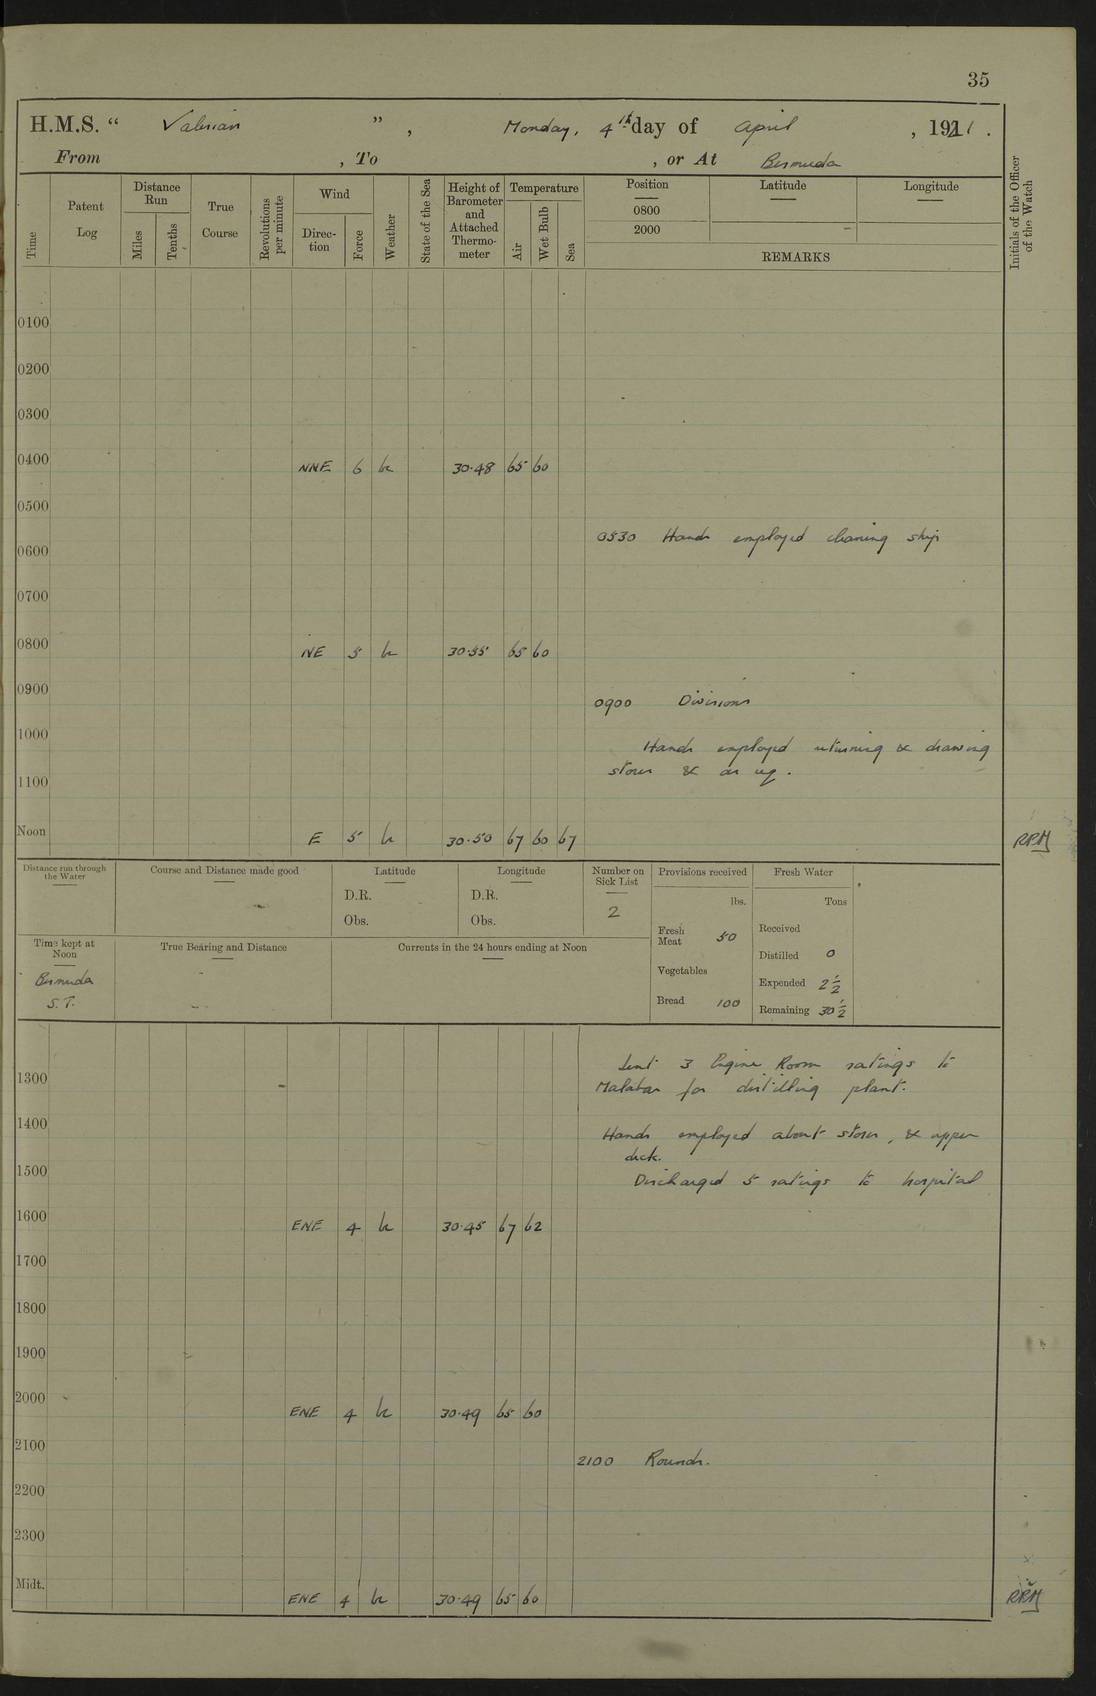 35
H.M.S. “ Valerian ” , Monday, 4th day of April , 1921 .
From , To , or At Bermuda
Time
Patent Log
Distance Run
Miles
Tenths
True Course
Revolutions per minute
Wind
Direc-tion
Force
Weather
State of the Sea
Height of Barometer and Attached Thermo-meter
Temperature
Air
Wet Bulb
Sea
Position
0800
2000
Latitude
Longitude
REMARKS
Initials of the Officer of the Watch
0100
0200
0300
0400 NNE 6 bc 30.48 65 60
0500
0530 Hands employed cleaning ship
0600
0700
0800 NE 5 bc 30.55 65 60
0900
0900 Divisions
1000
Hands employed returning & drawing
stores & as req.
1100
Noon E 5 bc 30.50 67 60 67 RRH
Distance run through the Water
Course and Distance made good
Latitude
D.R.
Obs.
Longitude
D.R.
Obs.
Number on Sick List
2
Provisions received
lbs.
Fresh Meat 50
Vegetables
Bread 100
Fresh Water
Tons
Received
Distilled 0
Expended 2 1/2
Remaining 30 1/2
Time kept at Noon
Bermuda
S.T.
True Bearing and Distance
Currents in the 24 hours ending at Noon
Sent 3 Engine Room ratings to
1300
Malabar for distilling plant.
1400
Hands employed about stores, & upper
deck.
1500
Discharged 5 ratings to hospital
1600 ENE 4 bc 30.45 67 62
1700
1800
1900
2000 ENE 4 bc 30.49 65 60
2100
2100 Rounds.
2200
2300
Midt. ENE 4 bc 30.49 65 60 RRH